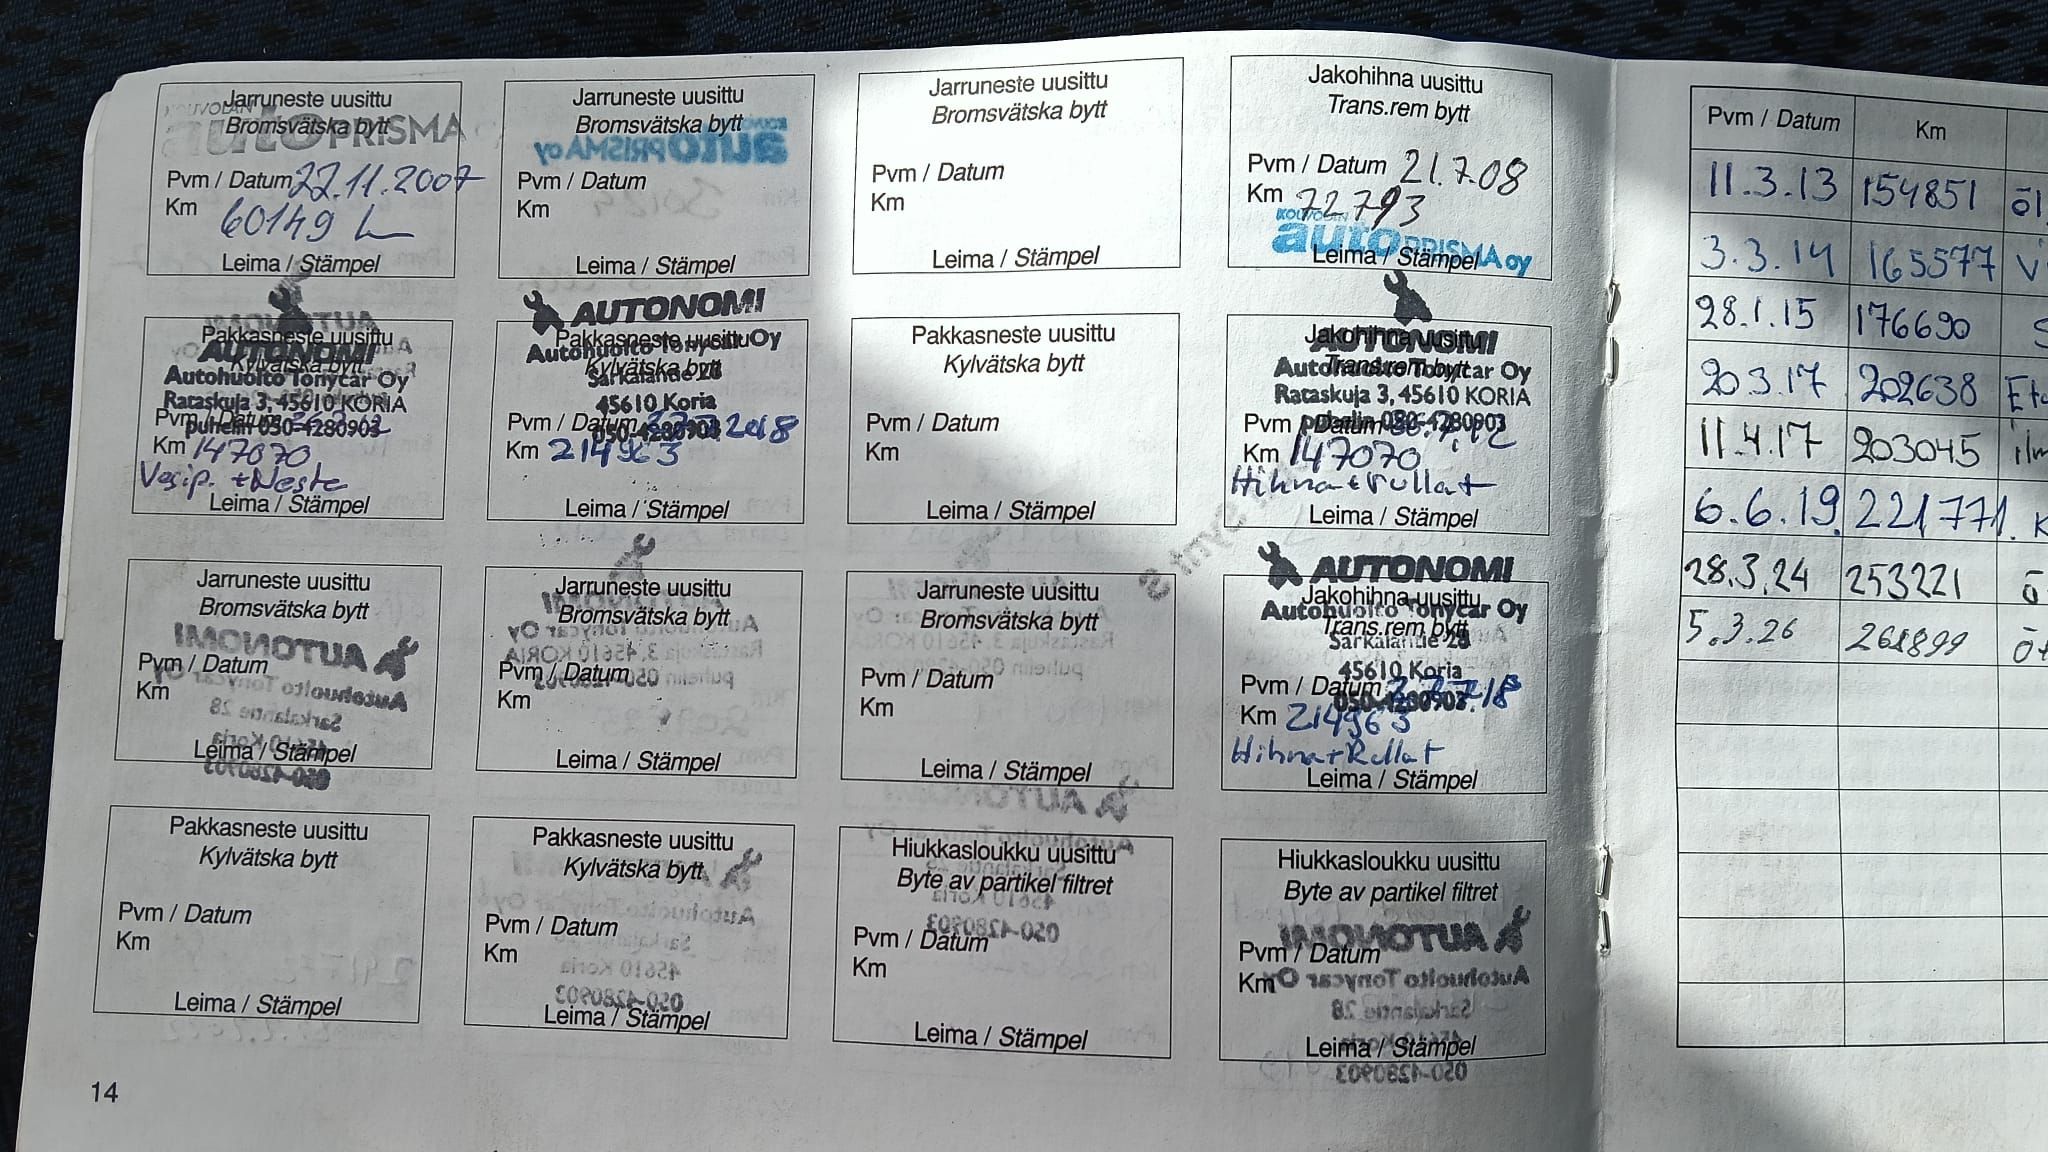 Jarruneste uusittu
Bromsvätska bytt
autoPRISMA
Pvm / Datum 22.11.2007
Km 60149
Leima / Stämpel
Jarruneste uusittu
Bromsvätska bytt
autoPRISMA oy
Pvm / Datum
Km
Leima / Stämpel
Jarruneste uusittu
Bromsvätska bytt
Pvm / Datum
Km
Leima / Stämpel
Jakohihna uusittu
Trans.rem bytt
Pvm / Datum 21.7.08
Km 72793
KOUVOLAN
autoPRISMA oy
Leima / Stämpel
Pakkasneste uusittu
Kylvätska bytt
AUTONOMI
Autohuolto Tonycar Oy
Rataskuja 3, 45610 KORIA
puhelin 050-4280903
Pvm / Datum
Km 147070
Vesip. + Neste
Leima / Stämpel
AUTONOMI
Pakkasneste uusittu
Autohuolto Tonycar Oy
Kylvätska bytt
Sarkalantie 28
45610 Koria
050-4280903
Pvm / Datum 2018
Km 214963
Leima / Stämpel
Pakkasneste uusittu
Kylvätska bytt
Pvm / Datum
Km
Leima / Stämpel
Jakohihna uusittu
AUTONOMI
Trans.rem bytt
Autohuolto Tonycar Oy
Rataskuja 3, 45610 KORIA
puhelin 050-4280903
Pvm / Datum
Km 147070
Hihna + rullat
Leima / Stämpel
Jarruneste uusittu
Bromsvätska bytt
Pvm / Datum
Km
Leima / Stämpel
Jarruneste uusittu
Bromsvätska bytt
Pvm / Datum
Km
Leima / Stämpel
Jarruneste uusittu
Bromsvätska bytt
Pvm / Datum
Km
Leima / Stämpel
AUTONOMI
Jakohihna uusittu
Autohuolto Tonycar Oy
Trans.rem bytt
Sarkalantie 28
45610 Koria
050-4280903
Pvm / Datum
Km 214963
Hihna + Rullat
Leima / Stämpel
Pakkasneste uusittu
Kylvätska bytt
Pvm / Datum
Km
Leima / Stämpel
Pakkasneste uusittu
Kylvätska bytt
Pvm / Datum
Km
Leima / Stämpel
Hiukkasloukku uusittu
Byte av partikel filtret
Pvm / Datum
Km
Leima / Stämpel
Hiukkasloukku uusittu
Byte av partikel filtret
Pvm / Datum
Km
Leima / Stämpel
14
Pvm / Datum Km
11.3.13 154851
3.3.14 165577
28.1.15 176690
20.3.17 202638
11.4.17 203045
6.6.19. 221771
28.3.24 253221
5.3.26